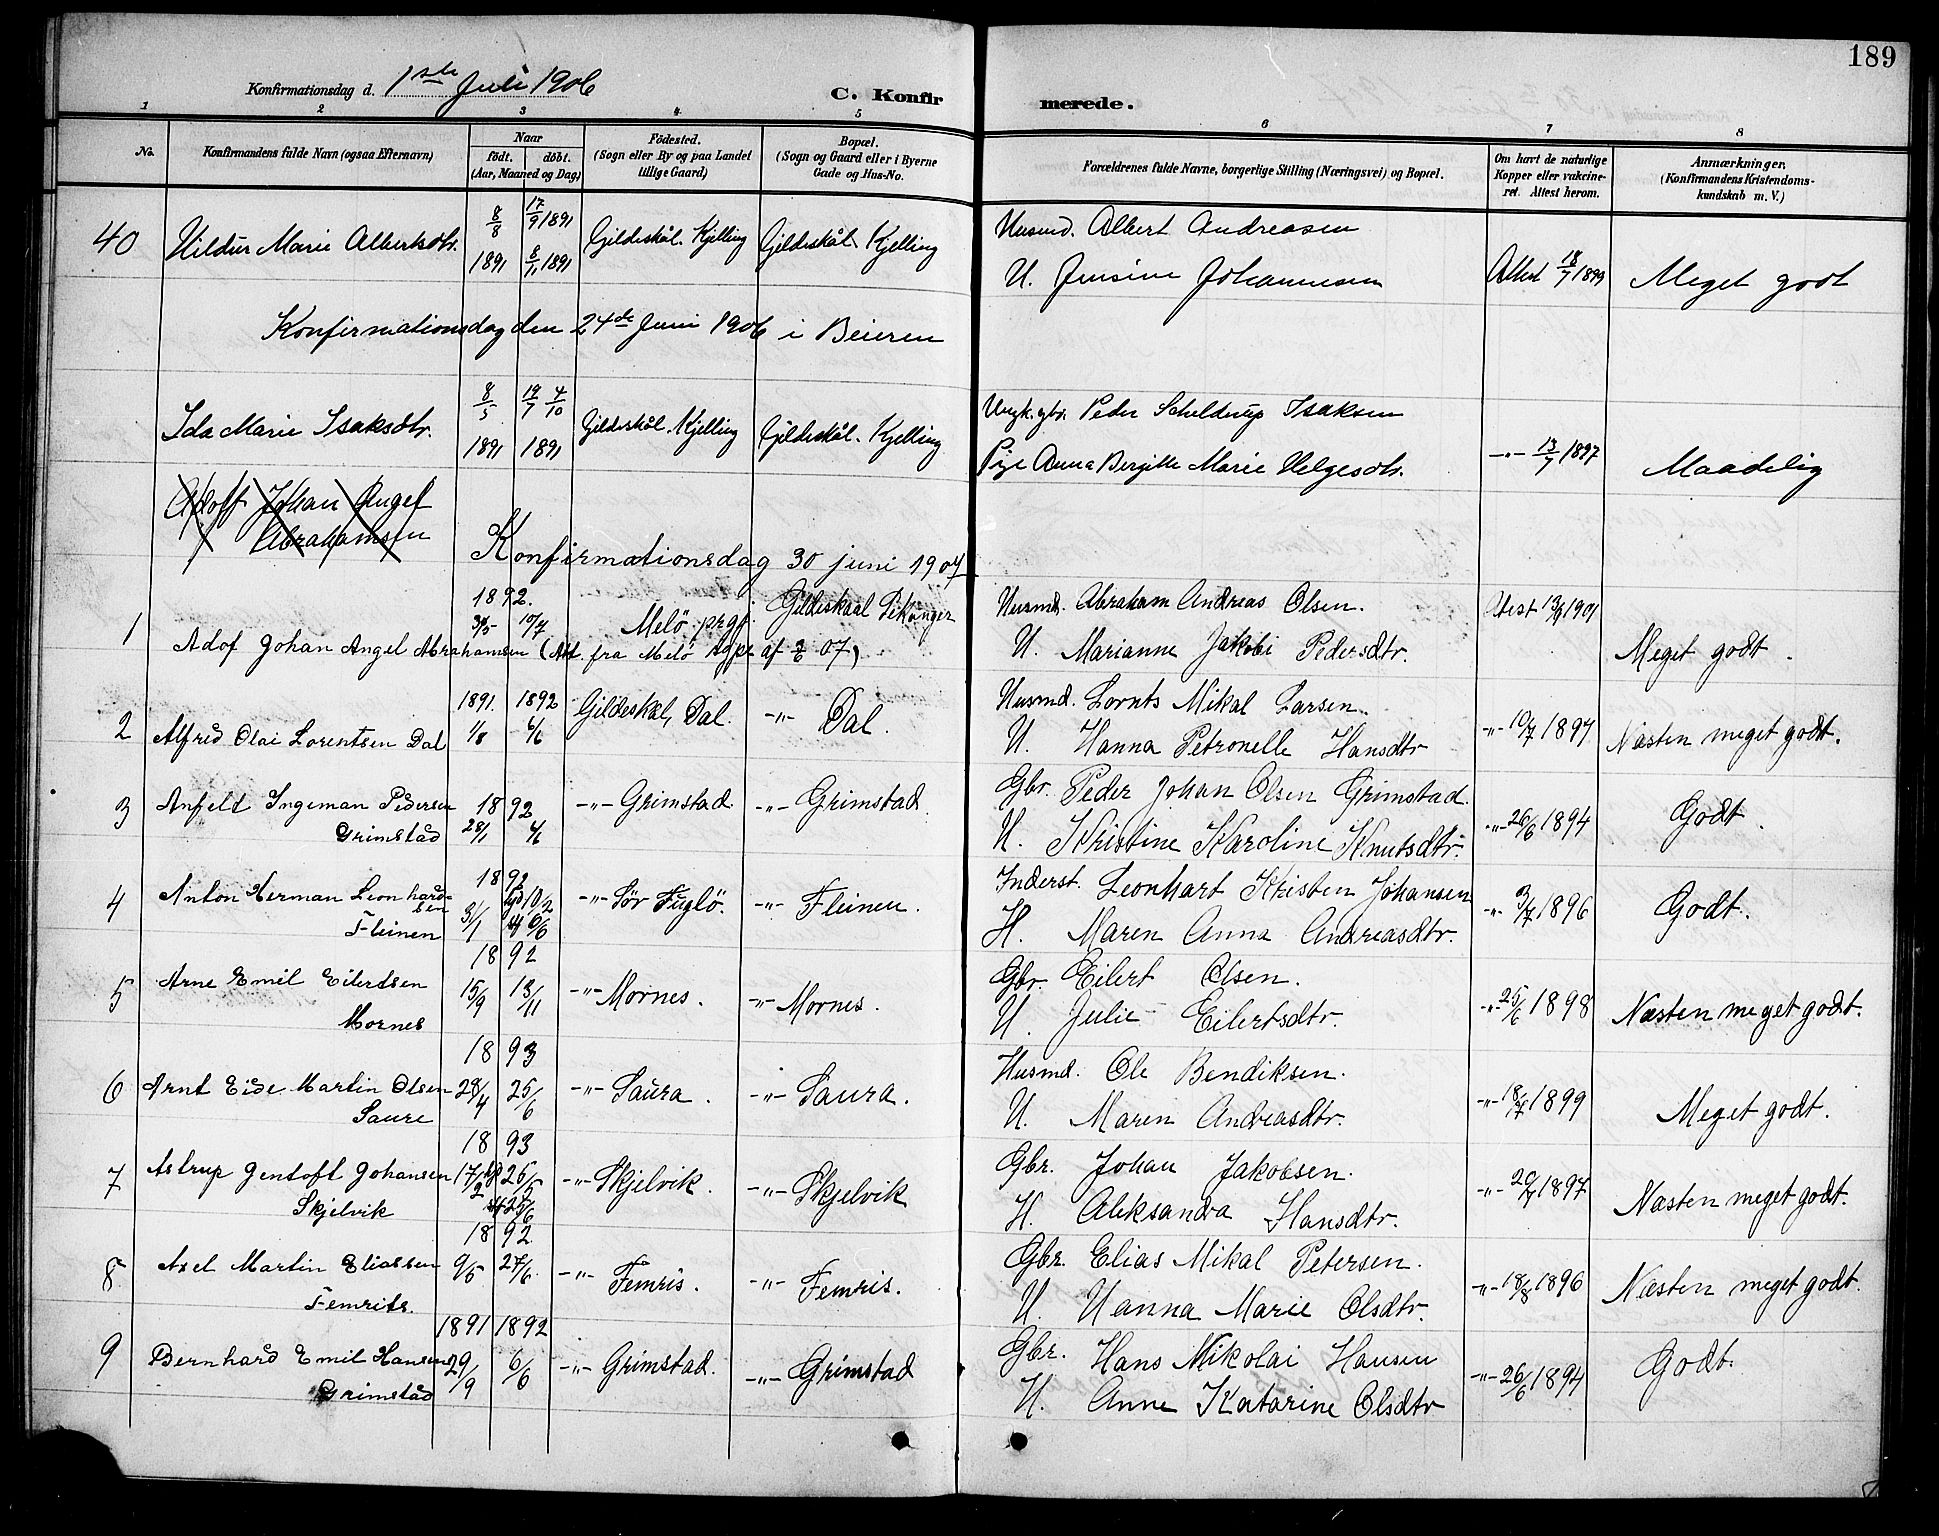 189
Konfirmationsdag d. 1ste Juli 1906
C. Konfirmerede.
1 2 3 4 5 6 7 8
No.
Konfirmandens fulde Navn (ogsaa Efternavn)
Naar
födt. döbt.
(Aar, Maaned og Dag)
Födested.
(Sogn eller By og paa Landet
tillige Gaard)
Bopæl.
(Sogn og Gaard eller i Byerne
Gade og Hus-No.
Forældrenes fulde Navne, borgerlige Stilling (Næringsvei) og Bopæl.
Om havt de naturlige
Kopper eller vakcine-
ret. Attest herom.
Anmærkninger.
(Konfirmandens Kristendoms-
kundskab m. V.)
40 Hildur Marie Albertsdtr. 8/8 1891 17/9 1891 8/11 1891 Gildeskål. Kjelling Gildeskål. Kjelling
Husmd. Albert Andreasen
H. Jensine Johannesen Attest 18/7 1899 Meget godt
Konfirmationsdag den 24de Juni 1906 i Beieren
Ida Marie Isaksdtr. 8/5 1891 19/7 4/10 1891 Gildeskål. Kjelling Gildeskål. Kjelling
Ungk. gbr. Peder Schelderup Isaksen
Pige Anna Bergitte Marie Helgesdtr. -"- 13/7 1897 Maadelig
Adolf Johan Angel
Abrahamsen
Konfirmationsdag 30 juni 1907
1 Adof Johan Angel Abrahamsen (Att. fra Melö Sgpr. af 2/6 07) 1892. 3/5 10/7 Melö prgj. Gildeskaal
Husmd. Abraham Andreas Olsen.
U. Marianne Jakobi Pedersdtr. Attest 13/9 1901 Meget godt.
2 Alfred Olai Lorentsen Dal 1891. 1/8 1892 6/6 Gildeskål, Dal. -"- Dal.
Husmd. Lornts Mikal Larsen.
U. Hanna Petronelle Hansdtr -"- 10/7 1897 Næsten meget godt.
3 Anfelt Ingeman Pedersen
Grimstad 1892 28/1 6/6 -"- Grimstad. -"- Grimstad
Gbr. Peder Johan Olsen Grimstad.
U. Kristine Karoline Knutsdtr. -"- 26/6 1894 Godt.
4 Anton Herman Leonhard-
sen
Fleinen 1892 31/1 10/2 6/6 -"- Sör Fuglö. -"- Fleinen.
Inderst. Leonhart Kristen Johansen
H. Maren Anna Andreasdtr. -"- 3/7 1896 Godt.
5 Arne Emil Eilerdsen
Mornes 1892 15/9 13/11 -"- Mornes. -"- Mornes.
Gbr. Eilert Olsen.
U. Julie Eilertsdtr. -"- 25/6 1898 Næsten meget godt.
6 Arnt Eide Martin Olsen
Saure 1893 28/4 25/6 -"- Saura. -"- Saura.
Husmd. Ole Bendiksen.
U. Maren Andreasdtr. -"- 18/7 1899 Meget godt.
7 Astrup Gentoft Johansen
Skjelvik 1893 17/2 -"- Skjelvik. -"- Skjelvik
Gbr. Johan Jakobsen.
H. Aleksandra Hansdtr. -"- 1897 Næsten meget godt.
8 Axel Martin Eliassen
Femrits. 1892 9/5 27/6 -"- Femris. -"- Femris.
Gbr. Elias Mikal Petersen.
U. Hanna Marie Olsdtr. -"- 18/8 1896 Næsten meget godt.
9 Bernhard Emil Hansen
Grimstad 1891 29/9 1892 6/6 -"- Grimstad. -"- Grimstad
Gbr. Hans Nikolai Hansen
U. Anne Katarine Olsdtr -"- 26/6 1894 Godt.